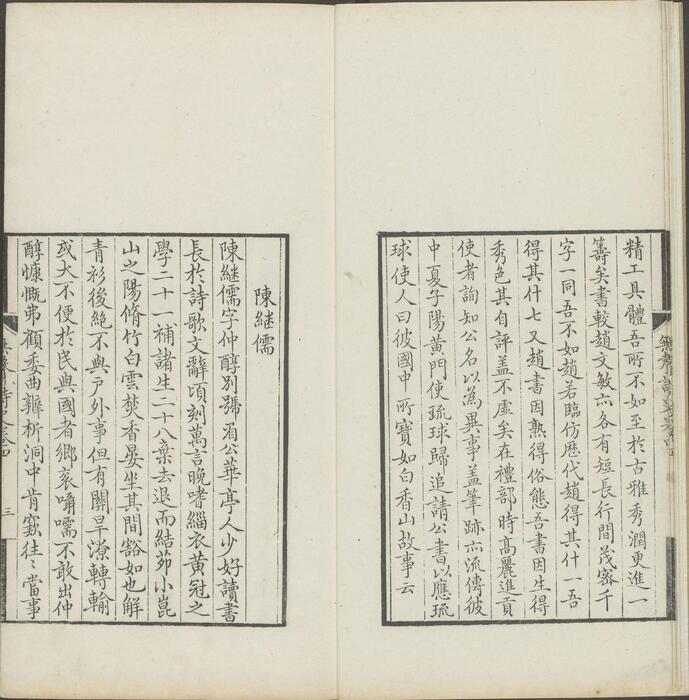 精工具體吾所不如至於古雅秀潤更進一
籌矣書較趙文敏亦各有短長行間茂密千
字一同吾不如趙若臨仿歷代趙得其什一吾
得其什七又趙書因熟得俗態吾書因生得
秀色其自評盖不虛矣在禮部時高麗進貢
使者詢知公名以為異事盖筆跡亦流傳彼
中夏子陽黃門使琉球歸追請公書以應琉
球使人曰彼國中所寶如白香山故事云
陳継儒
陳継儒字仲醇別號眉公華亭人少好讀書
長於詩歌文辭頃刻萬言晚嗜緇衣黃冠之
學二十一補諸生二十八棄去退而結茆小崑
山之陽脩竹白雲焚香晏坐其間豁如也解
青衫後絶不與戶外事但有關旱潦轉輸
或大不便於民與國者鄉衮囁嚅不敢出仲
醇慷慨弗顧委曲辨析洞中肯窾往〻當事
三